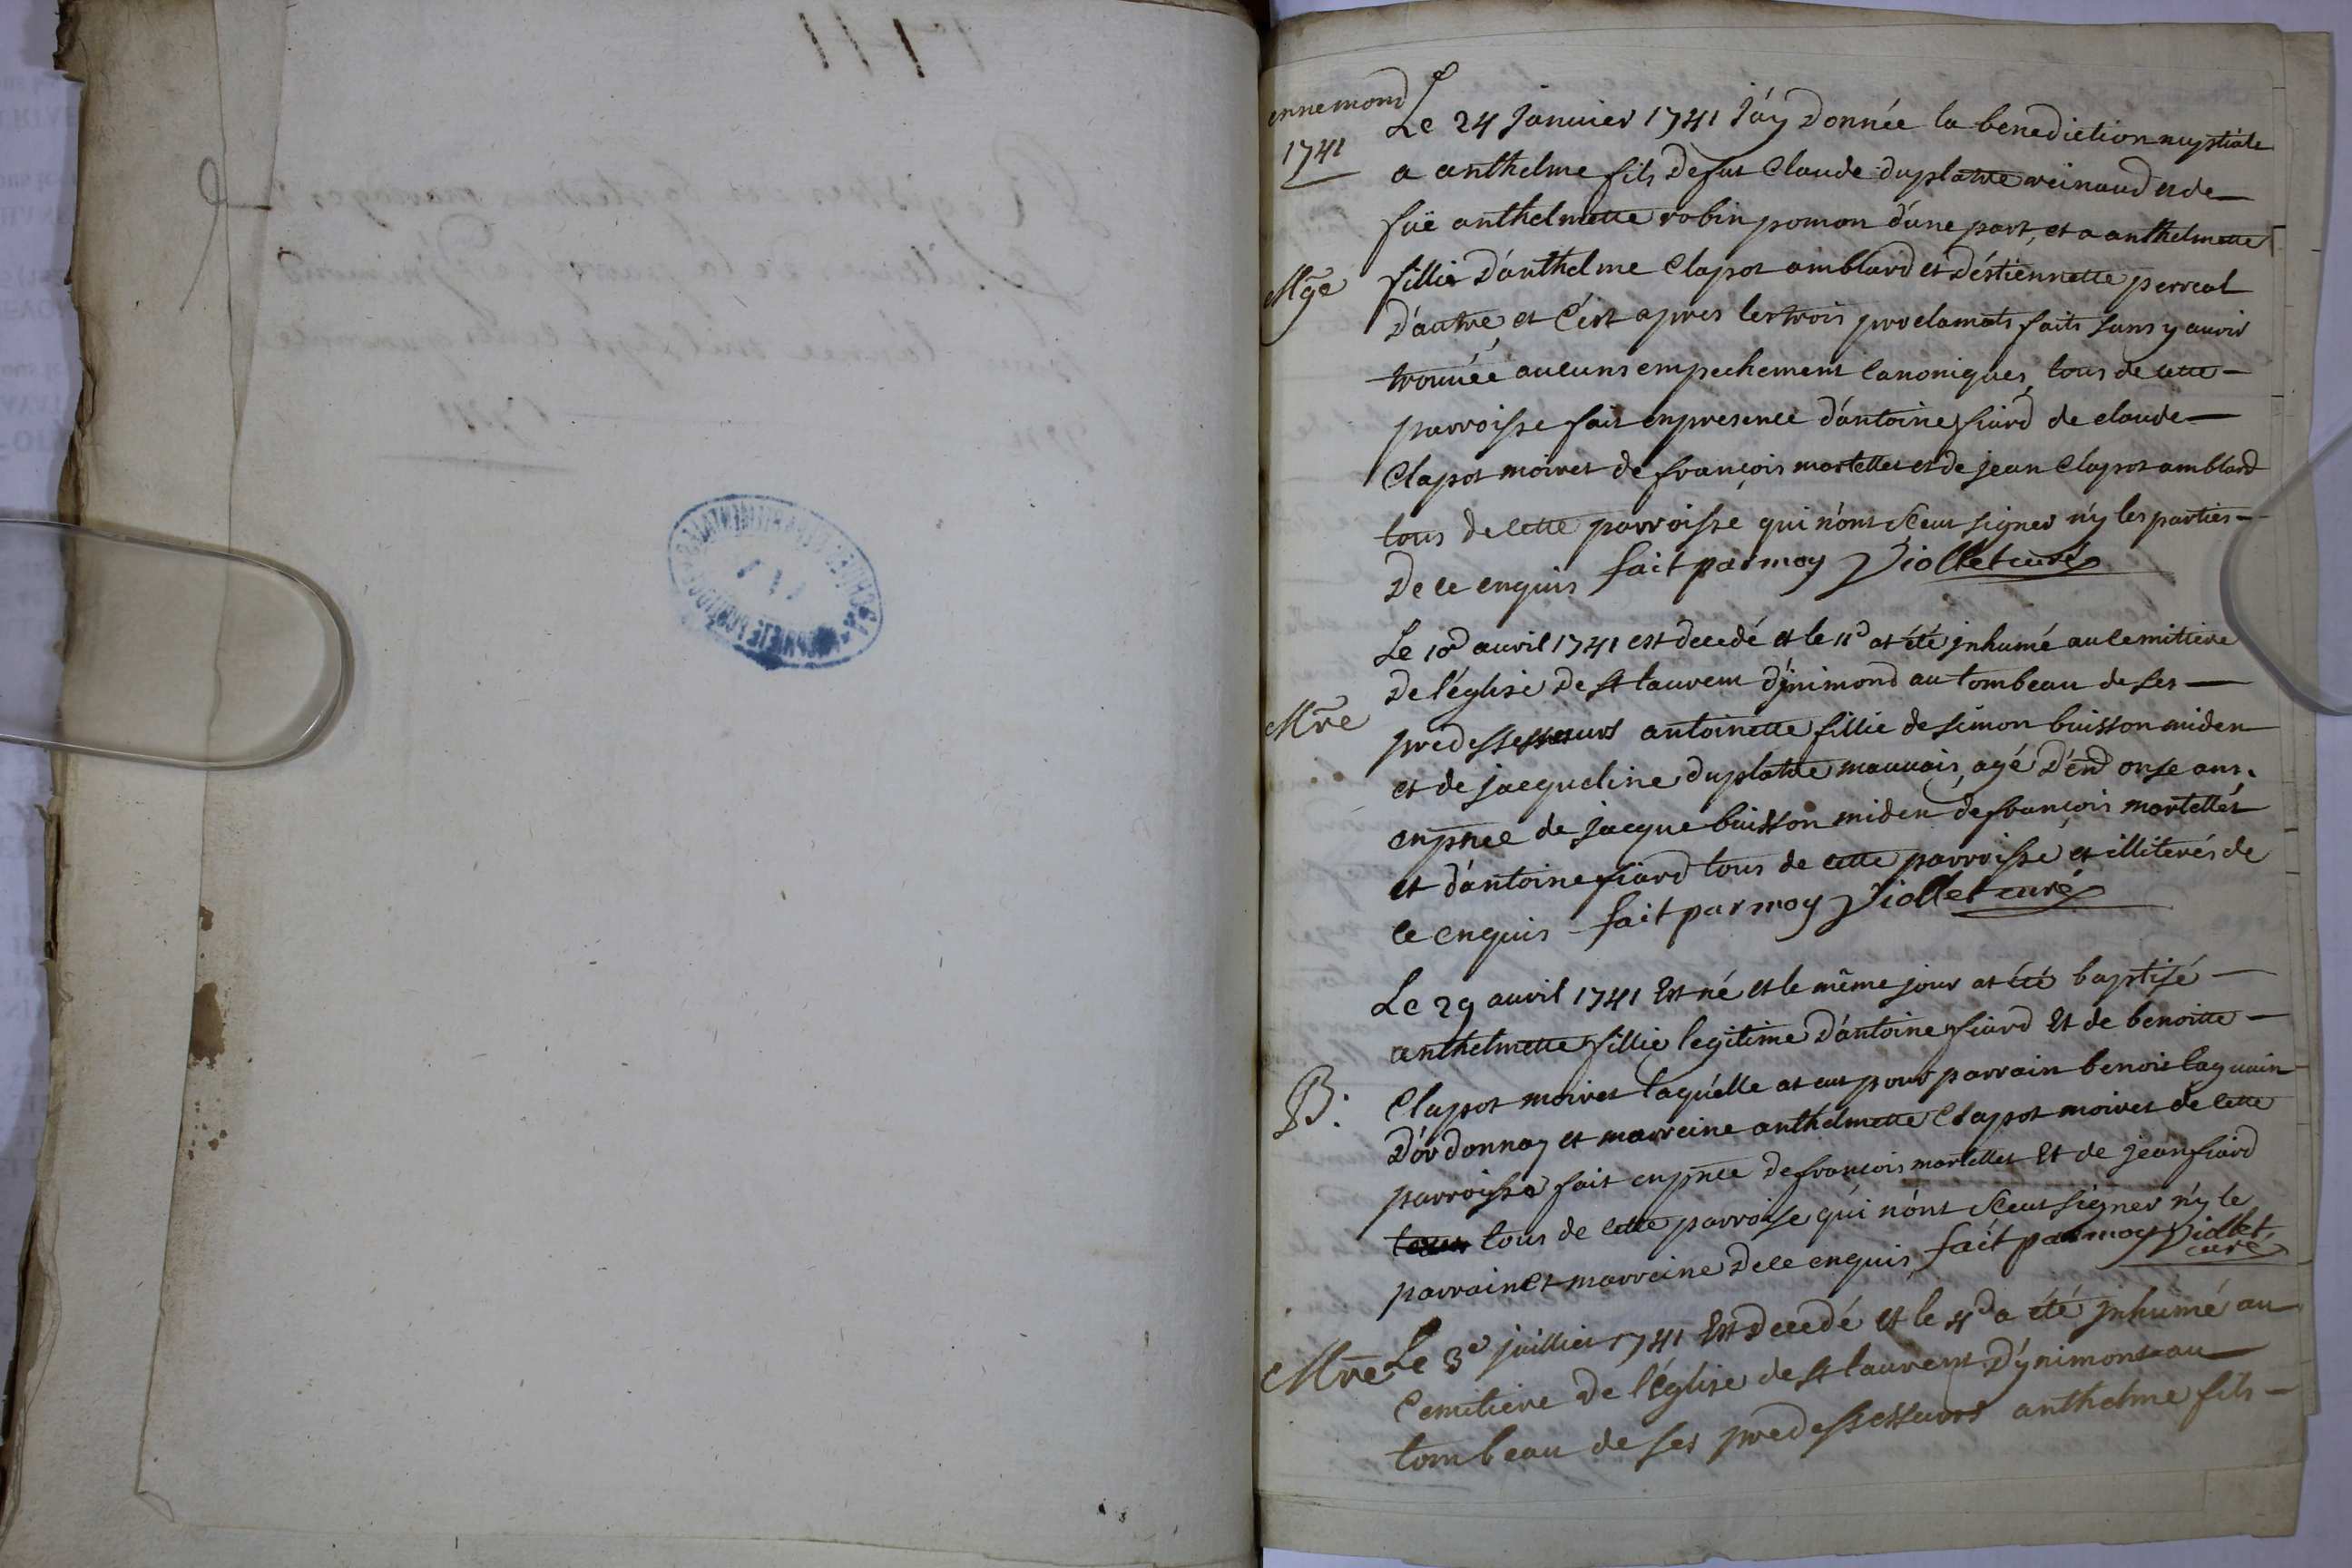 ennemond
1741
Le 24 Januier 1741 J'ay donnée la benediction nuptiale
a anthelme fils defut Claude duplatre reinaud et de
fuë anthelmette robin pomon d'une part, et a anthelmette
Mge
fillie d'anthelme Clapot amblard et d'éstiennette perreal
d'autre, et C'ést apres les trois proclamats faits sans y auoir
trouuéé aucuns empechement canoniques, tous de cette
parroisse fait enpresence d'antoine fiard de claude
Clapot moiret de françois martellet et de jean Clapot amblard
tous de cette parroisse qui n'ont sceut signer n'y les parties
de ce enquis fait par moy Viollet curé
Le 10d auril 1741 est decedé et le 11d at été jnhumé au cemitiere
de l'église de st laurent d'jnimond au tombeau de ses
Mre
predessesseurs antoinette fillie de simon buisson miden
et de jacqueline duplatre mauuais, agé d'énd onse ans.
enpnce de jacque buisson miden de françois martellét
et d'antoine fiard tous de cette parroisse et illiterés de
ce enquis fait par moy Viollet curé
Le 29 auril 1741 Est né et le même jour at été baptisé
anthelmette fillie legitime d'antoine fiard Et de benoitte
B.
Clapot moiret laquélle at eut pour parrain benoit laguain
d'ordonnay et marreine anthelmette Clapot moiret de cette
parroisse fait enpnce de françois martellet Et de jean fiard
tous de cette parroisse qui n'ónt sceut signer n'y le
parrain et marreine de ce enquis fait par moy Viollet
curé
Mre
Le 3e juillier 1741 Est decedé et le 4d a été jnhumé au
Cemitiere de l'église de st laurent d'ynimont au
tombeau de ses predessesseurs anthelme fils